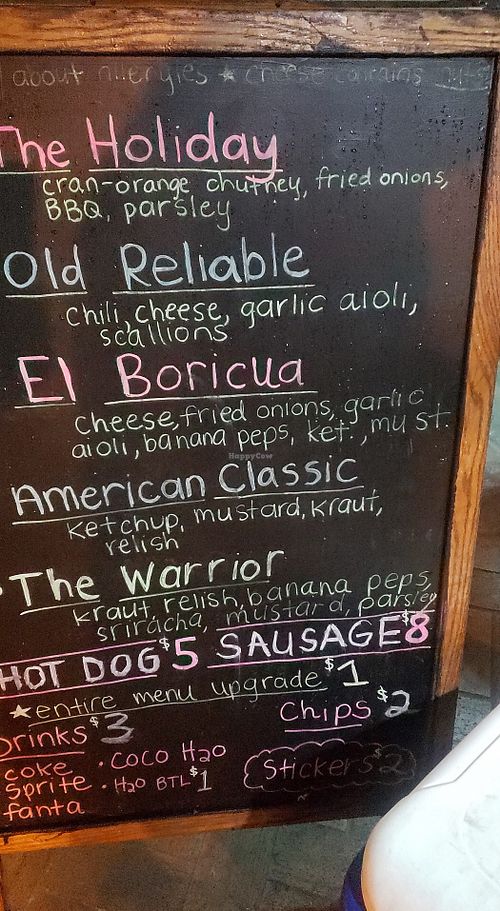 about allergies ★ cheese contains nuts
The Holiday
cran-orange chutney, fried onions,
BBQ, parsley
Old Reliable
chili, cheese, garlic aioli,
scallions
El Boricua
cheese, fried onions, garlic
aioli, banana peps, ket., must.
HappyCow
American Classic
ketchup, mustard, kraut,
relish
The Warrior
kraut, relish, banana peps,
sriracha, mustard, parsley
HOT DOG $5 SAUSAGE $8
★ entire menu upgrade $1
Drinks $3 Chips $2
coke • COCO H2O
Sprite • H2O BTL $1 Stickers $2
fanta